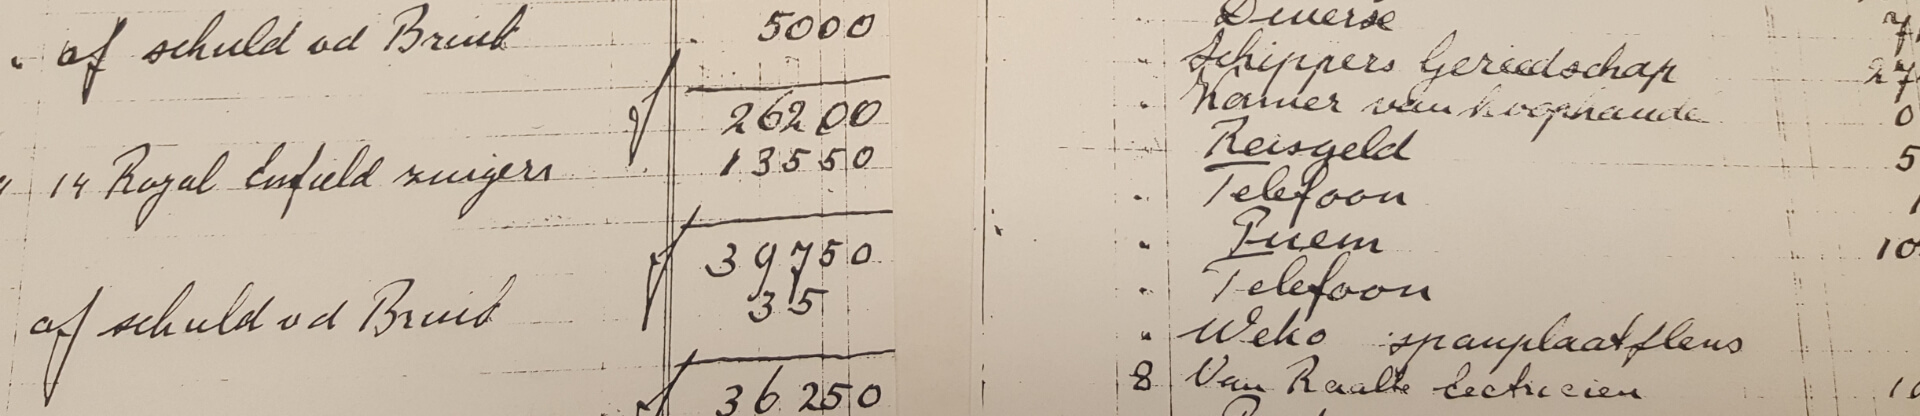 " af schuld vd Brink 5000
f 26200
" 14 Royal Enfield zuigers 13550
f 39750
af schuld vd Brink 35
f 36250
" Diverse 7
" Schippers Gereedschap 27
" Kamer van koophande 0
Reisgeld 5
" Telefoon
" Puem 10
" Telefoon
" Weko spanplaatflens
8 Van Raalte Eectricien 10